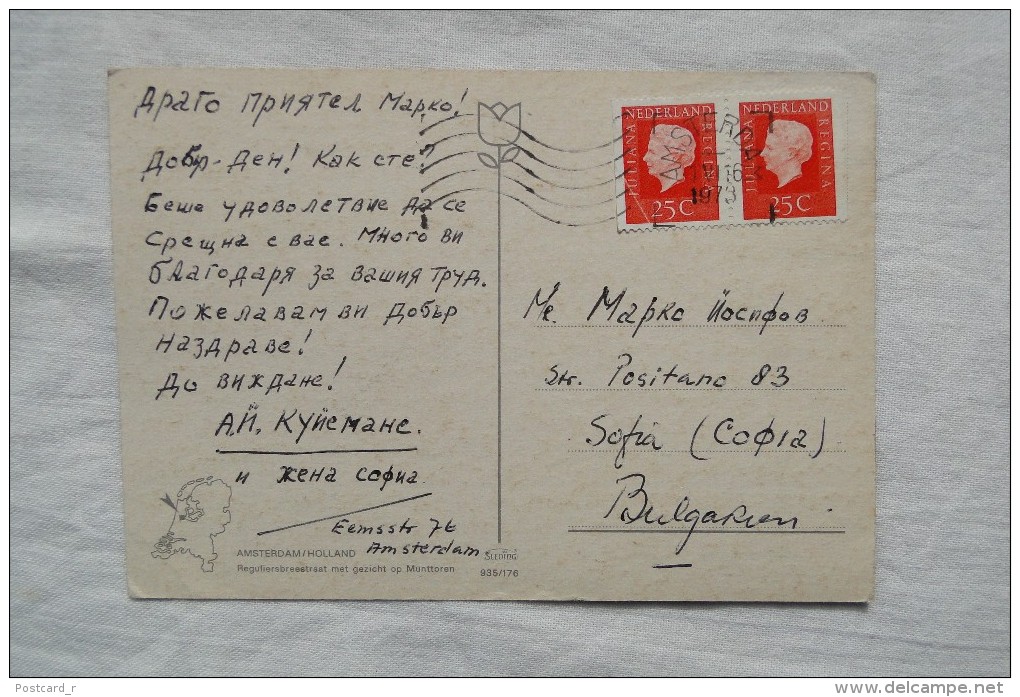 Драго приятел Марко!
Добр-ден! Как сте?
Беше удоволствие да се
срещна с вас. Много ви
благодаря за вашия труд.
Пожелавам ви Добър
наздраве!
До виждане!
А.Й. Куйемане.
и жена София
Eemsstr 7
Amsterdam.
AMSTERDAM/HOLLAND
Reguliersbreestraat met gezicht op Munttoren
SLEDING
935/176
NEDERLAND
JULIANA REGINA
25 C
NEDERLAND
JULIANA REGINA
25 C
AMSTERDAM
1973
Марко Йосифов
Str. Positano 83
Sofia (София)
Bulgarien
Postcard_r
www.delcampe.net